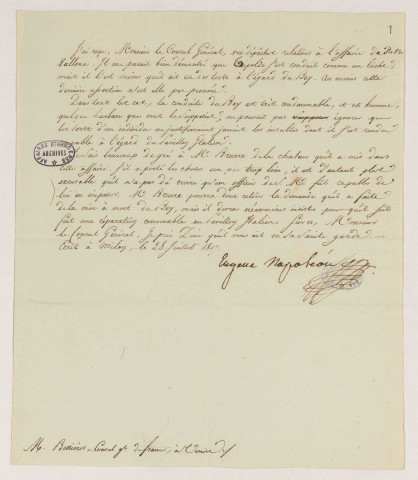 1
J'ai reçu, Monsieur le Consul Général, vos dépêches relatives à l'affaire du
Il me parait bien démontré que s'est conduit comme un lâche
mais il l'est moins qu'il ait eu des torts à l'égard du Bey. Au moins cette
dernière assertion n'est elle pas prouvée.
Dans tout état de cas, la conduite du Bey est très condamnable, et cet homme,
quelque barbare que vous le supposiez, ne pouvait pas ignorer que
les torts d'un individu ne justifieraient jamais les insultes dont il s'est rendu
coupable à l'égard du Pavillon Italien.
Je sais beaucoup de gré à Mr. de la chaleur qu'il a mise dans
cette affaire. S'il a porté les choses un peu trop loin, il est d'autant plus
excusable qu'il n'a pas dû croire qu'un officier de S. M. fut capable de
lui en imposer. Mr. pourra donc retirer la demande qu'il a faite
de la mise à mort du Bey, mais il devra néanmoins insister pour qu'il soit
fait une réparation convenable au Pavillon Italien. Sur ce, Monsieur
le Consul Général, Je prie Dieu qu'il vous ait en sa sainte garde.
Ecrit à Milan, le 28 Juillet
Eugène Napoléon
AFFAIRES ETRANGERES
ARCHIVES
M. Consul gl. de france, à Venise